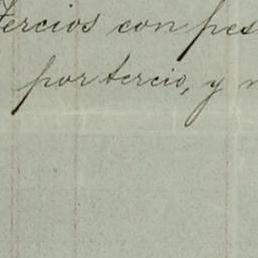 tercios con pes
por tercio, y